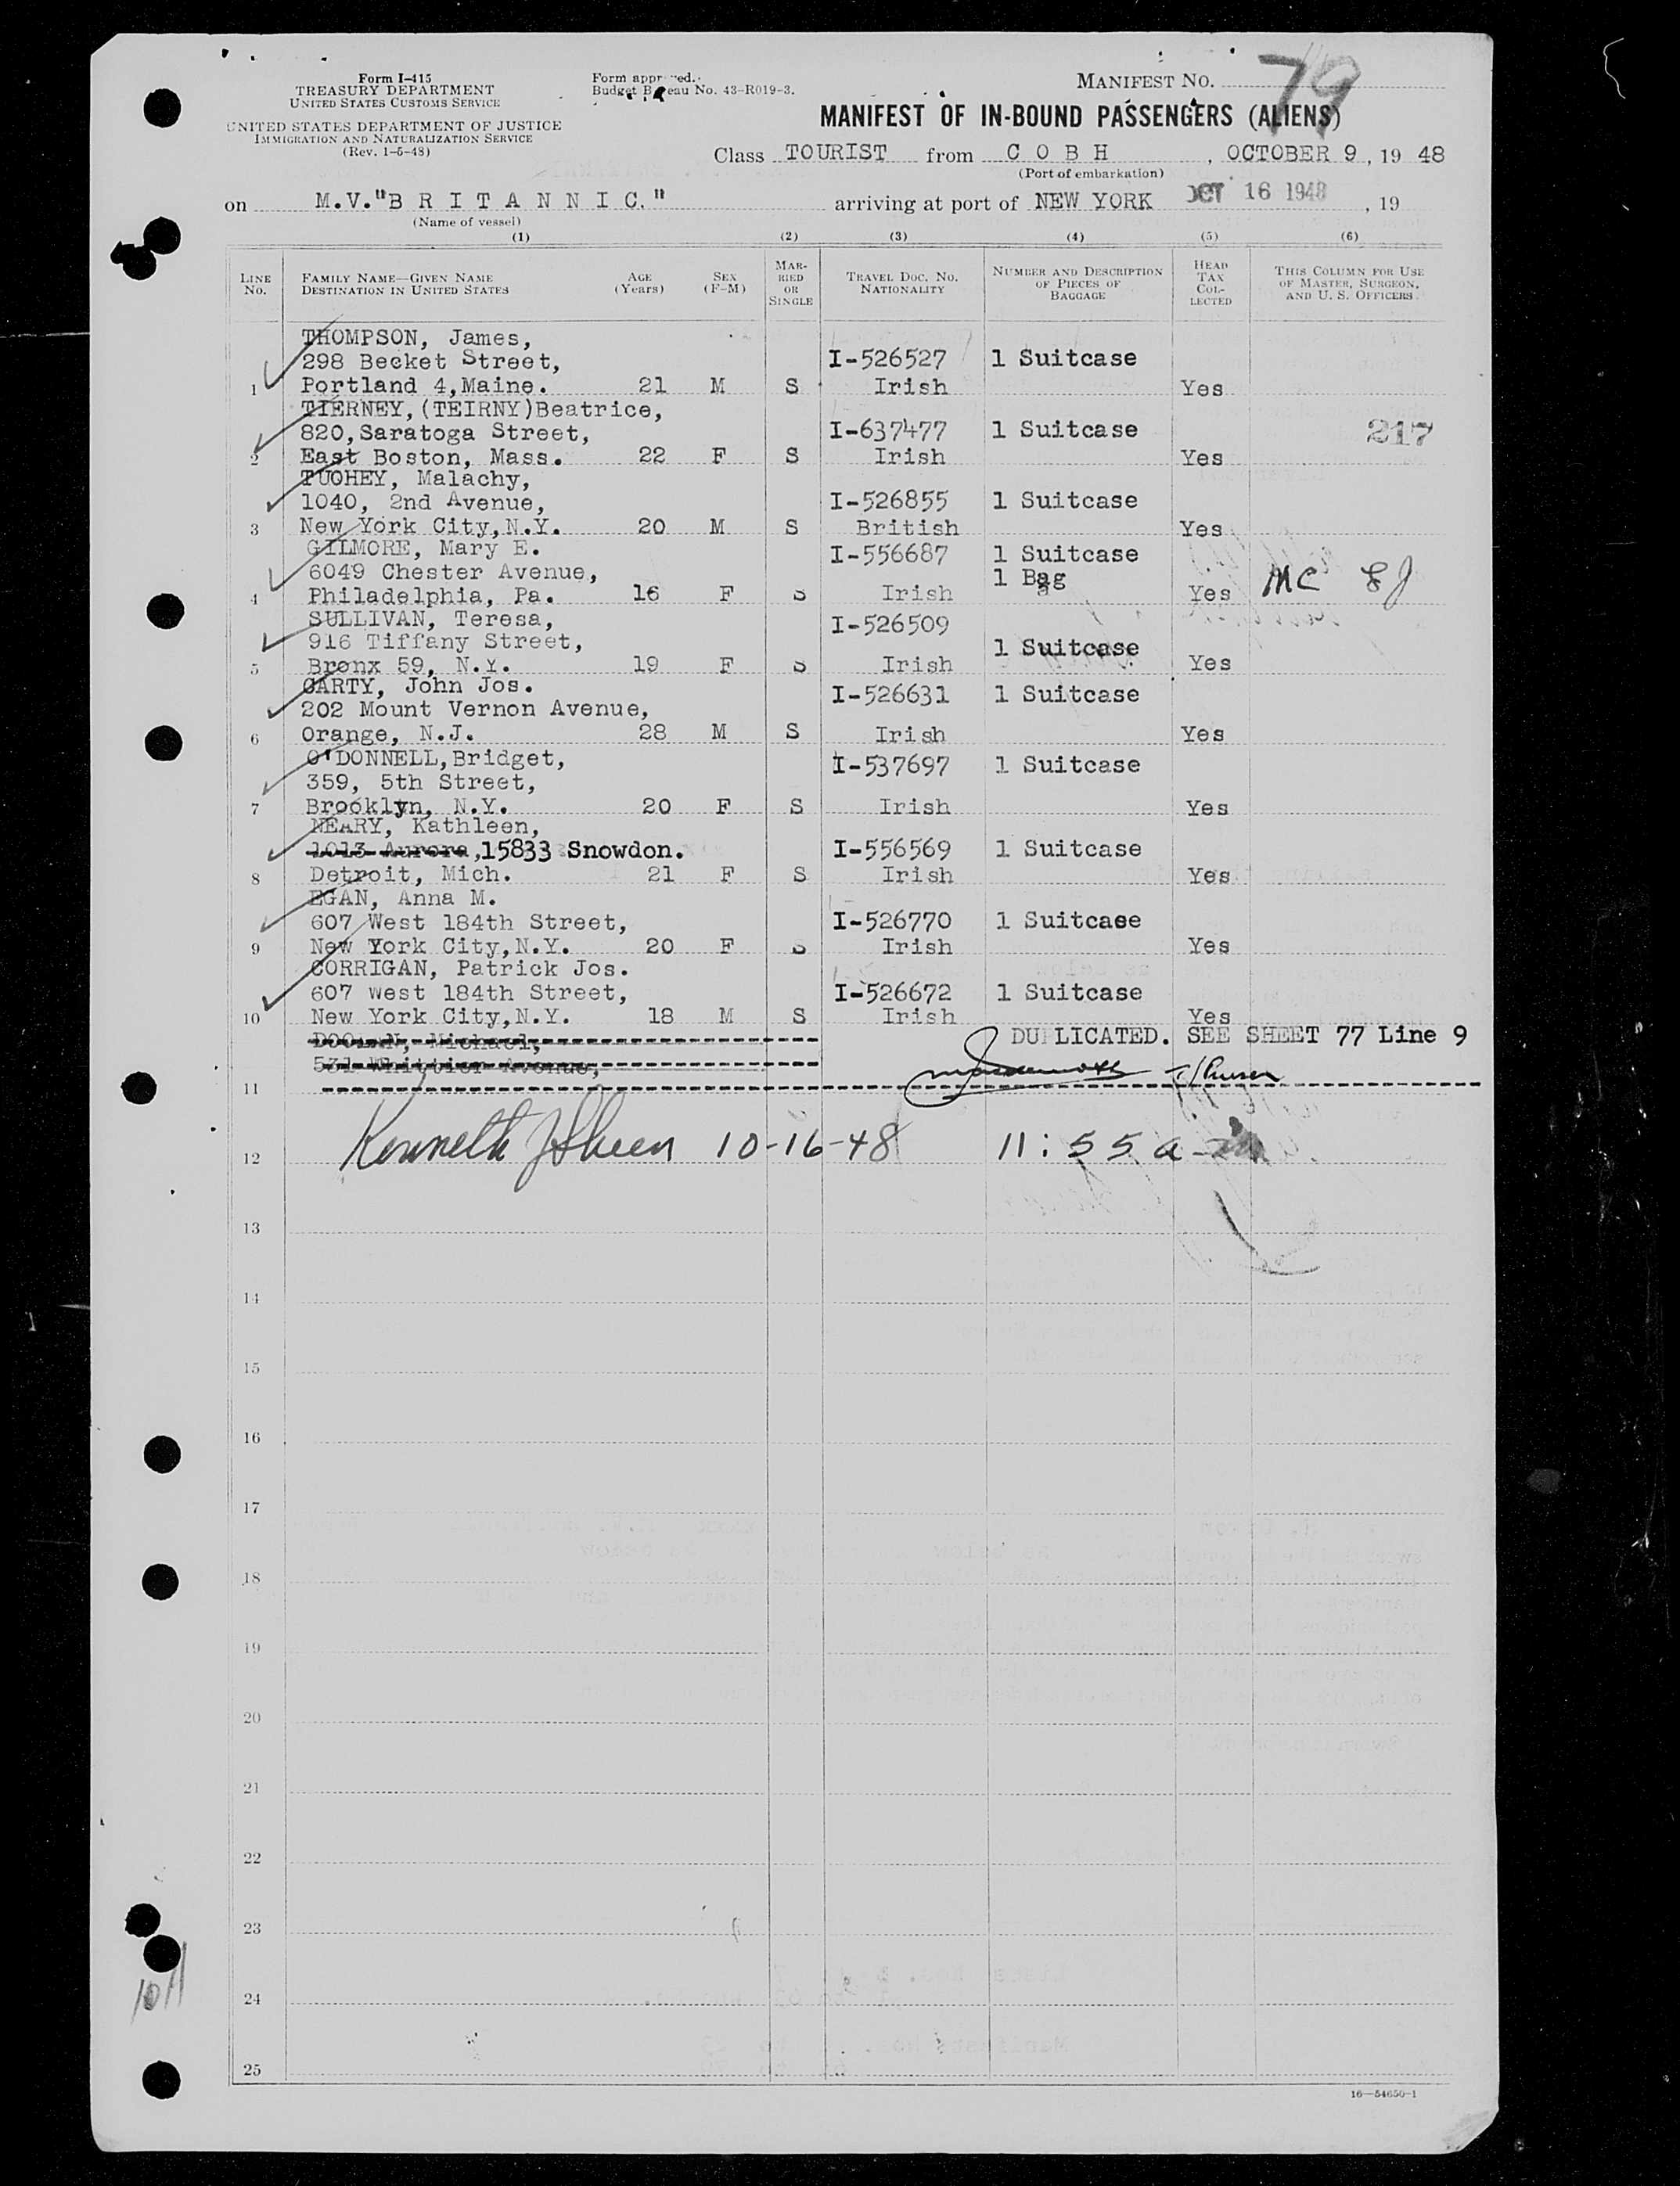 Form I-415
TREASURY DEPARTMENT
UNITED STATES CUSTOMS SERVICE
UNITED STATES DEPARTMENT OF JUSTICE
IMMIGRATION AND NATURALIZATION SERVICE
(Rev. 1-5-48)
Form approved.
Budget Bureau No. 43-R019-3.
MANIFEST NO. 79
MANIFEST OF IN-BOUND PASSENGERS (ALIENS)
Class TOURIST from C O B H, OCTOBER 9, 19 48
(Port of embarkation)
on M.V."B R I T A N N I C." arriving at port of NEW YORK OCT 16 1948, 19
(Name of vessel)
(1) (2) (3) (4) (5) (6)
LINE NO.
FAMILY NAME—GIVEN NAME
DESTINATION IN UNITED STATES
AGE (Years)
SEX (F-M)
MARRIED OR SINGLE
TRAVEL DOC. NO. NATIONALITY
NUMBER AND DESCRIPTION OF PIECES OF BAGGAGE
HEAD TAX COLLECTED
THIS COLUMN FOR USE OF MASTER, SURGEON, AND U. S. OFFICERS
THOMPSON, James,
298 Becket Street, I-526527 1 Suitcase
1 Portland 4,Maine. 21 M S Irish Yes
TIERNEY,(TEIRNY)Beatrice,
820,Saratoga Street, I-637477 1 Suitcase 217
2 East Boston, Mass. 22 F S Irish Yes
TUOHEY, Malachy,
1040, 2nd Avenue, I-526855 1 Suitcase
3 New York City,N.Y. 20 M S British Yes
GILMORE, Mary E. I-556687 1 Suitcase
6049 Chester Avenue, 1 Bag
4 Philadelphia, Pa. 16 F S Irish Yes MC
SULLIVAN, Teresa, I-526509
916 Tiffany Street, 1 Suitcase
5 Bronx 59, N.Y. 19 F S Irish Yes
CARTY, John Jos. I-526631 1 Suitcase
202 Mount Vernon Avenue,
6 Orange, N.J. 28 M S Irish Yes
O'DONNELL,Bridget, I-537697 1 Suitcase
359, 5th Street,
7 Brooklyn, N.Y. 20 F S Irish Yes
NEARY, Kathleen,
1013 Aurora,15833 Snowdon. I-556569 1 Suitcase
8 Detroit, Mich. 21 F S Irish Yes
EGAN, Anna M.
607 West 184th Street, I-526770 1 Suitcase
9 New York City,N.Y. 20 F S Irish Yes
CORRIGAN, Patrick Jos.
607 West 184th Street, I-526672 1 Suitcase
10 New York City,N.Y. 18 M S Irish Yes
DOOLAN, Michael, DUPLICATED. SEE SHEET 77 Line 9
531 Whittier Avenue,
11
12 Kenneth 10-16-48 11:55 a
13
14
15
16
17
18
19
20
21
22
23
24
25
16—54650-1